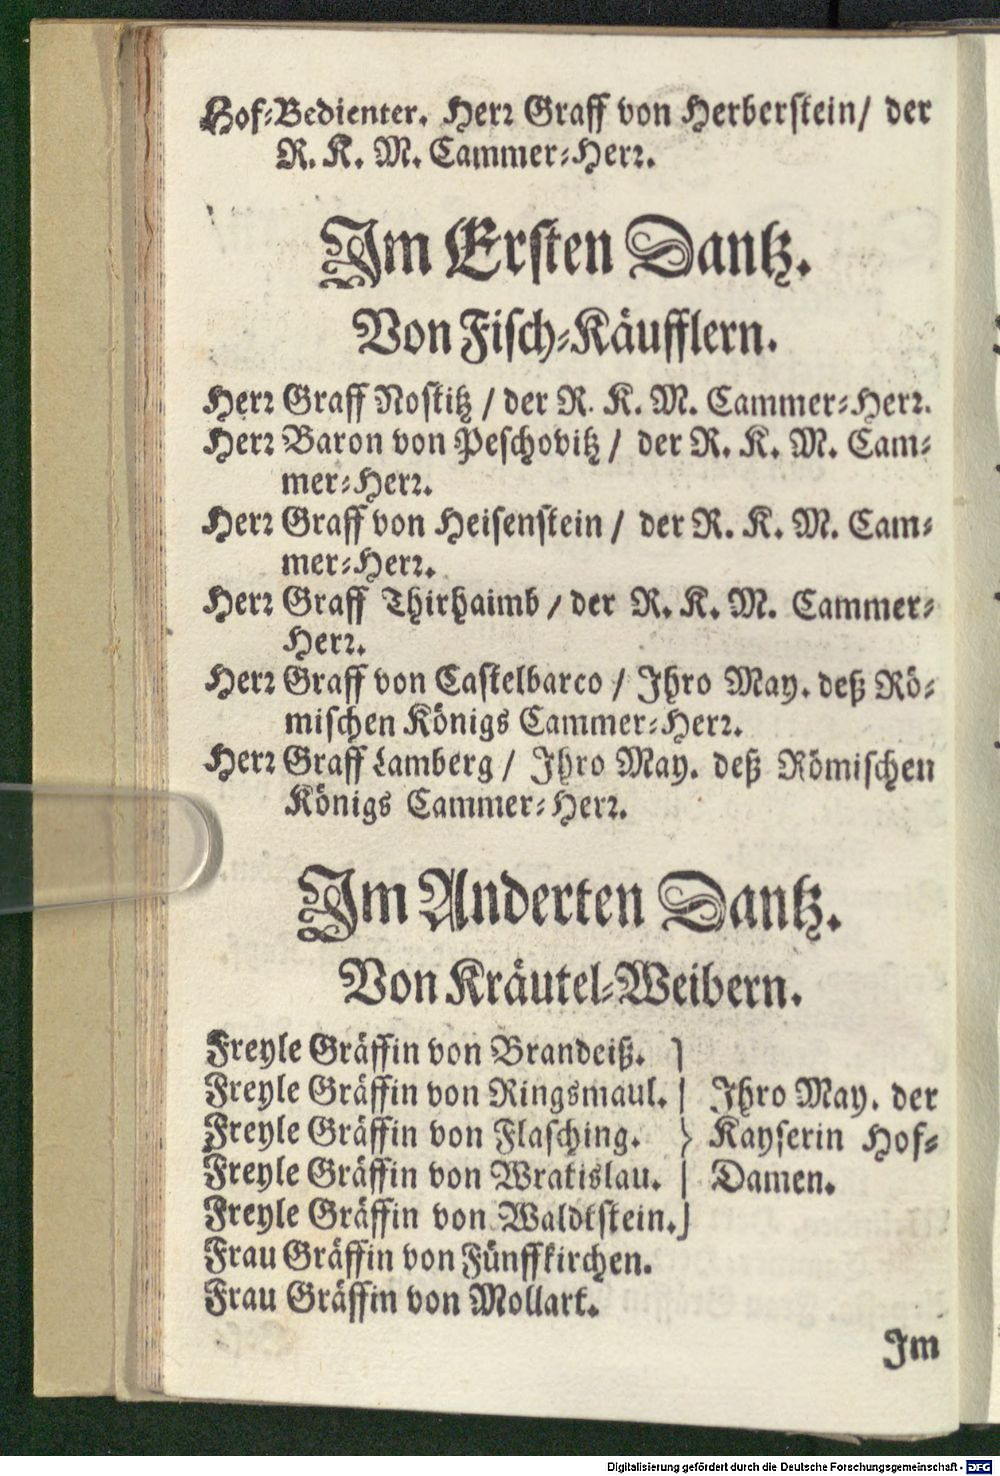 Hof-Bedienter. Herr Graff von Herberstein/ der
R. K. M. Cammer-Herr.
Im Ersten Dantz.
Von Fisch-Käufflern.
Herr Graff Nostitz / der R. K. M. Cammer-Herr.
Herr Baron von Peschovitz / der R. K. M. Cam-
mer-Herr.
Herr Graff von Heisenstein / der R. K. M. Cam-
mer-Herr.
Herr Graff Thirhaimb / der R. K. M. Cammer-
Herr.
Herr Graff von Castelbarco / Ihro May. deß Rö-
mischen Königs Cammer-Herr.
Herr Graff Lamberg / Ihro May. deß Römischen
Königs Cammer-Herr.
Im Anderten Dantz.
Von Kräutel-Weibern.
Freyle Gräffin von Brandeiß.
Freyle Gräffin von Ringsmaul.
Freyle Gräffin von Flasching.
Freyle Gräffin von Wratislau.
Freyle Gräffin von Waldtstein.
Ihro May. der
Kayserin Hof-
Damen.
Frau Gräffin von Fünffkirchen.
Frau Gräffin von Mollart.
Im
Digitalisierung gefördert durch die Deutsche Forschungsgemeinschaft - DFG